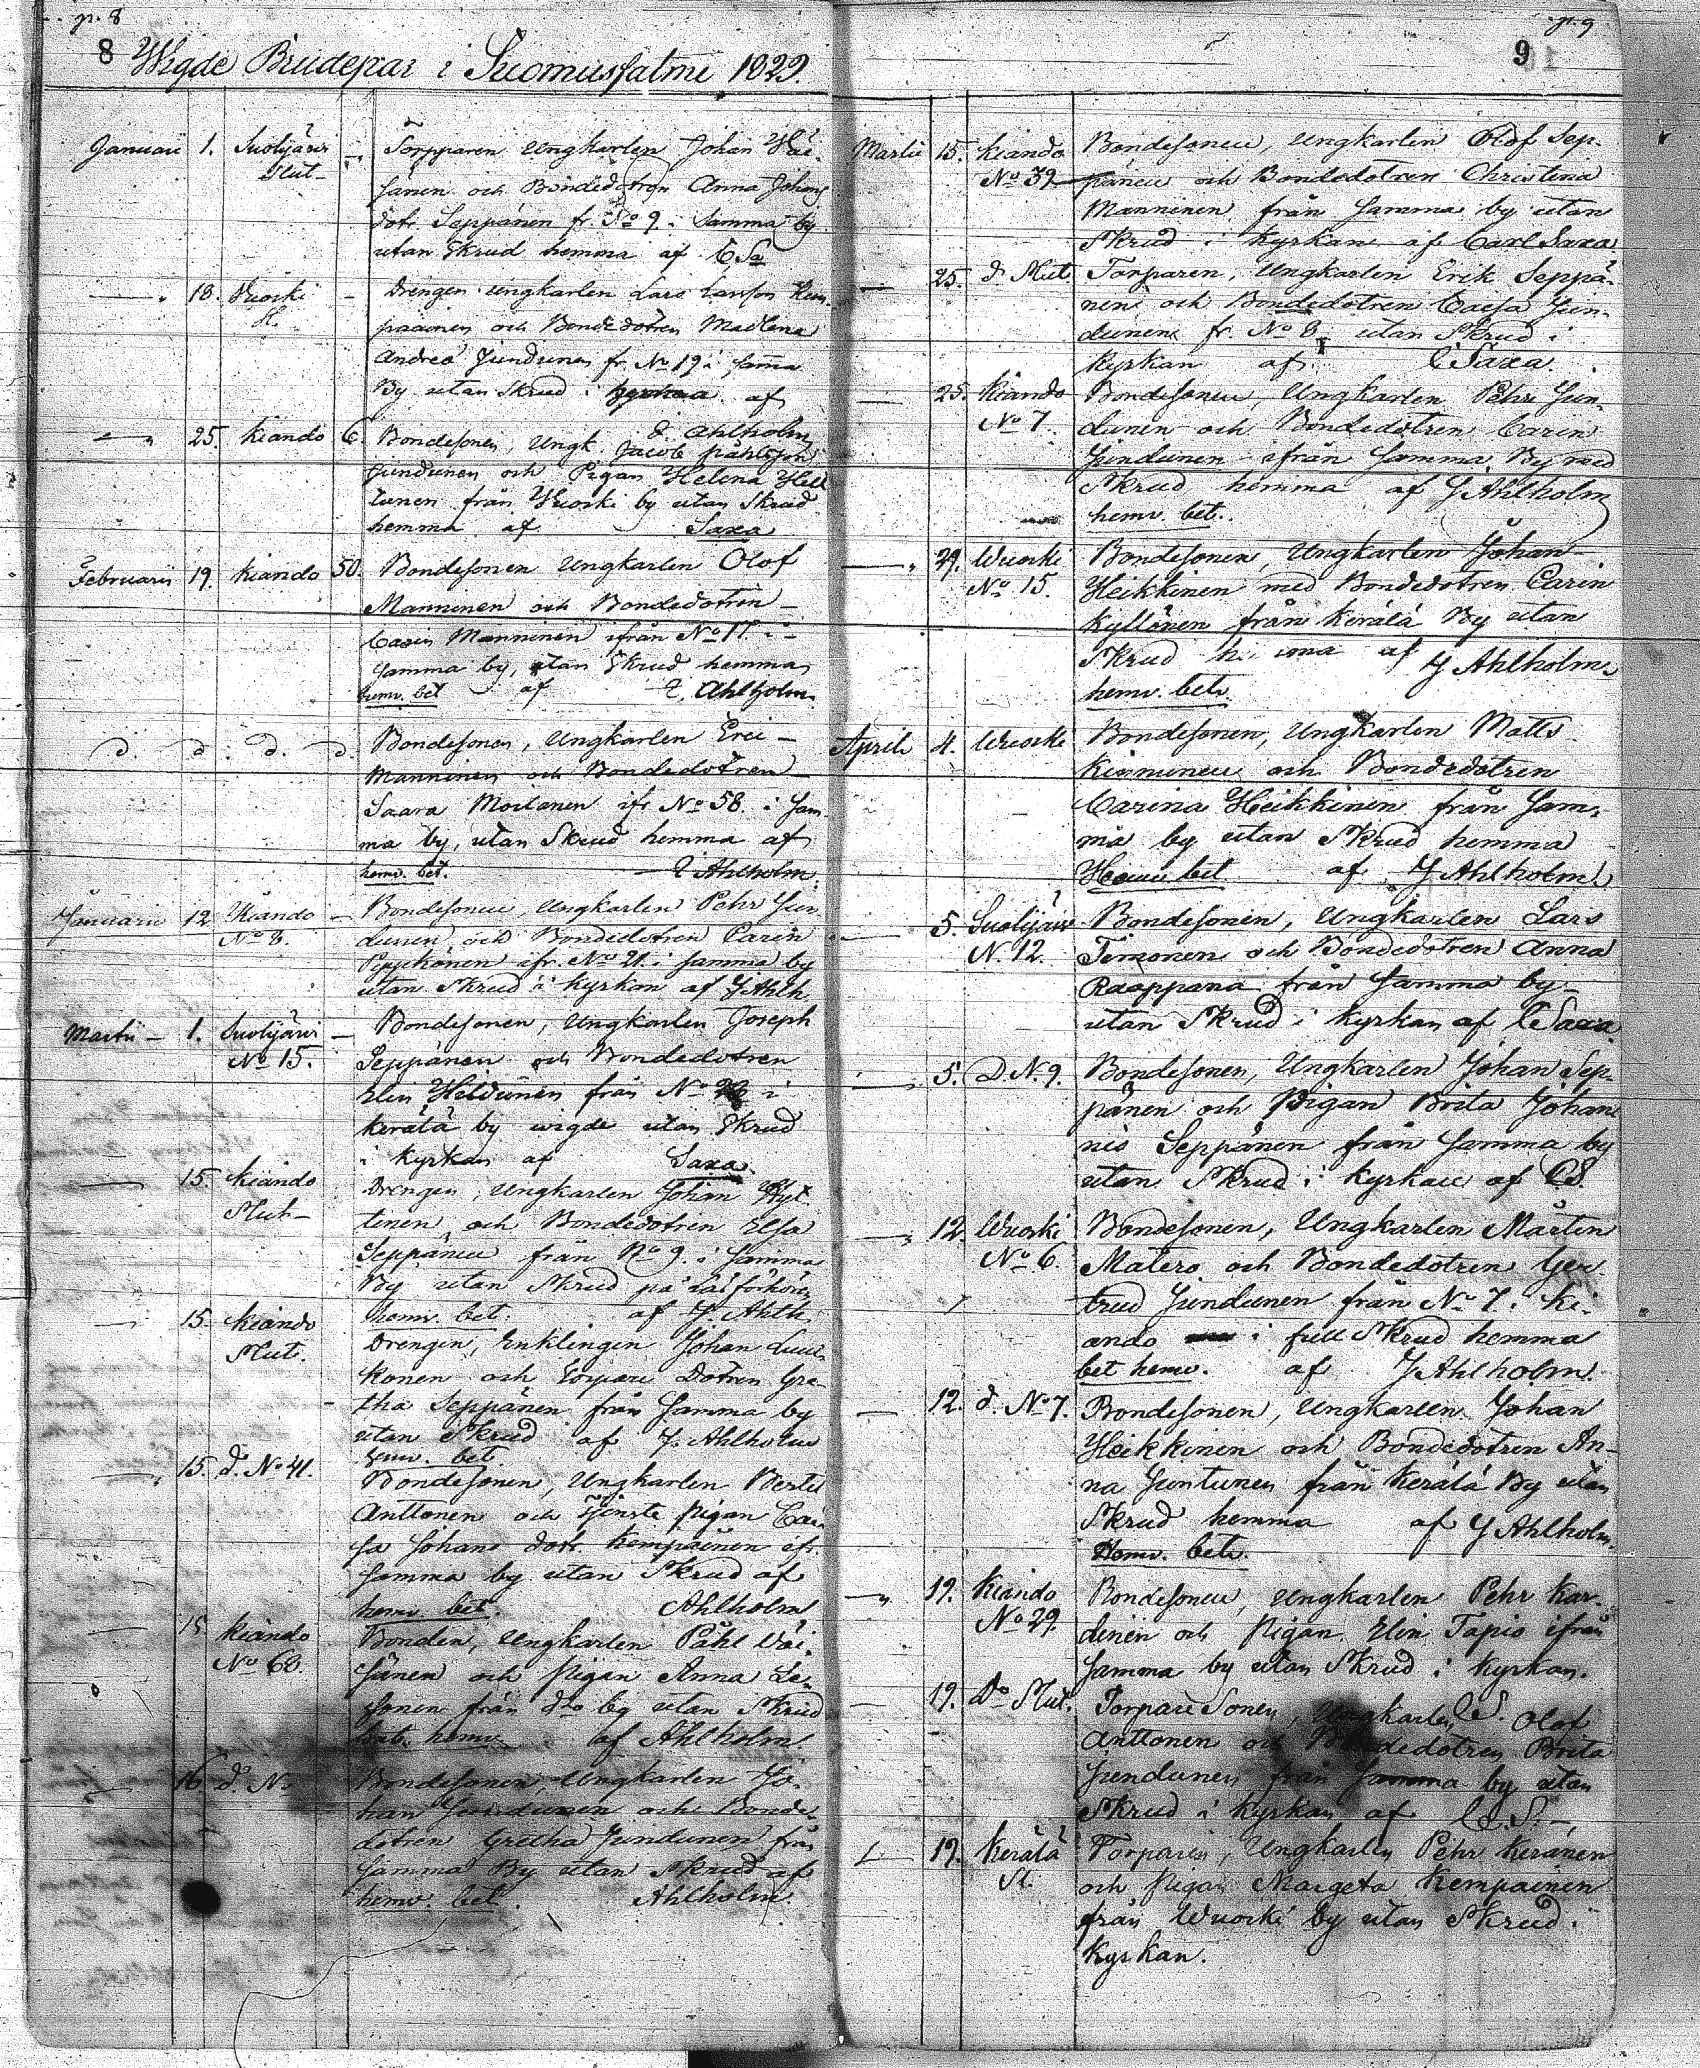 p. 8
8 Wigde Brudepar i Suomusfalmi 1829.
Januari 1. Suolijärvi Slut
Torpparen Ungkarlen Johan Wäi-
sänen och Bondedotren Anna Johans
dotr Seppänen fr. No 9 i samma by
utan Skrud hemma af C Sa
18. Wuocki Sl.
Drengen Ungkarlen Lars Larsson Kem-
painen och Bondedotren Madlena
Andrea Jundunen fr No 19 i samma
By utan Skrud i kyrkan af
E. Ahlholm
25. Kiando 6.
Bondesonen, Ungk. Jacob Påhlsson
Jundunen och Pigan Helena Hel
tunen från Wuocki by utan Skrud
hemma af Saxa
Februarii 19. Kiando 50.
Bondesonen Ungkarlen Olof
Manninen och Bondedotren
Carin Manninen ifrån No 11. i
samma by, utan Skrud hemma
hemv. bet af E. Ahlholm
d. d. d. d.
Bondesonen, Ungkarlen Eric
Manninen och Bondedotren
Saara Moilanen ifr No 58. i sam-
ma by, utan Skrud hemma af
hemv. bet. E Ahlholm
Januarii 12 Kiando No 8.
Bondesonen, Ungkarlen Pehr Jun
dunen, och Bondedotren Carin
Pyykönen ifr. No 21. i samma by
utan Skrud i kyrkan af J Ahlh.
Martii 1. Suolijärvi No 15.
Bondesonen, Ungkarlen Joseph
Seppänen och Bondedotren
Elin Heldunen från No i
Kerälä by wigde utan Skrud
i Kyrkan af Saxa.
15. Kiando Slut
Drengen, Ungkarlen Johan Hyt
tinen och Bondedotren Elsa
Seppänen från No 9. i samma
By utan Skrud på Läsförhöre
hemv. bet. af J. Ahlh.
15. Kiando Slut.
Drengen, Enklingen Johan Luuk
konen och Torpare Dotren Gre-
tha Seppänen från samma by
utan Skrud af J. Ahlholm
hemv. bet.
15. d. No 41.
Bondesonen, Ungkarlen Bertil
Anttonen och Tjenste pigan Cai-
sa Johans dotr Kempainen ifr.
samma by utan Skrud af
hemv. bet. Ahlholm
15 Kiando No 60.
Bonden, Ungkarlen Påhl Väi-
sänen och pigan Anna Le-
sonen från dto by utan Skrud
bet. hemv. af Ahlholm
16. do No
Bondesonen, Ungkarlen Jo-
han Jundunen och Bonde-
dotren Gretha Jundunen från
samma By utan Skrud af
hemv. bet. Ahlholm.
p. 9
9
Martii 15. Kiando No 39
Bondesonen, Ungkarlen Olof Sep-
pänen och Bondedotren Christina
Manninen från samma by utan
Skrud i kyrkan af Carl Saxa
25. d. Slut.
Torparen, Ungkarlen Erik Seppä-
nen och Bondedotren Caisa Jun-
dunen fr. No 8 utan Skrud i
kyrkan af C Saxa.
25. Kiando No 7
Bondesonen, Ungkarlen Pehr Jun-
dunen och Bondedotren Carin
Jundunen ifrån samma By med
Skrud hemma af J Ahlholm
hemv. bet.
29. Wuocki No 15.
Bondesonen, Ungkarlen Johan
Heikkinen med Bondedotren Carin
Kyllönen från Kerälä By utan
Skrud hemma af J Ahlholm
hemv. betr
April 4. Wuocki
Bondesonen, Ungkarlen Matts
Kinnunen och Bondedotren
Carina Heikkinen från sam-
ma by utan Skrud hemma
Hemv bet af J Ahlholm.
5. Suolijärvi N. 12.
Bondesonen, Ungkarlen Lars
Timonen och Bondedotren Anna
Raappana från samma by
utan Skrud i kyrkan af C Saxa
5. D. N. 9.
Bondesonen, Ungkarlen Johan Sep-
pänen och Pigan Brita Johan
nis Seppänen från samma by
utan Skrud i Kyrkan af C. S.
12. Wuocki No 6.
Bondesonen, Ungkarlen Mårten
Matero och Bondedotren Ger-
trud Jundunen från No 7. Ki-
ando i full Skrud hemma
bet hemv. af J Ahlholm.
12. d. No 7.
Bondesonen, Ungkarlen Johan
Heikkinen och Bondedotren An-
na Juntunen från Kerälä By utan
Skrud hemma af J Ahlholm.
Hemv. betr.
19. Kiando No 29.
Bondesonen, Ungkarlen Pehr Kar-
dinen och Pigan Elin Tapio ifrån
samma by utan Skrud i kyrkan.
C. S.
19. Do Slut.
Torpare Sonen, Ungkarlen Olof
Anttonen och Bondedotren Brita
Jundunen från samma by utan
Skrud i kyrkan af C. S.
19. Kerälä Sl.
Torparen, Ungkarlen Pehr Keränen
och Pigan Margeta Kempainen
från Wuocki by utan Skrud i
kyrkan.